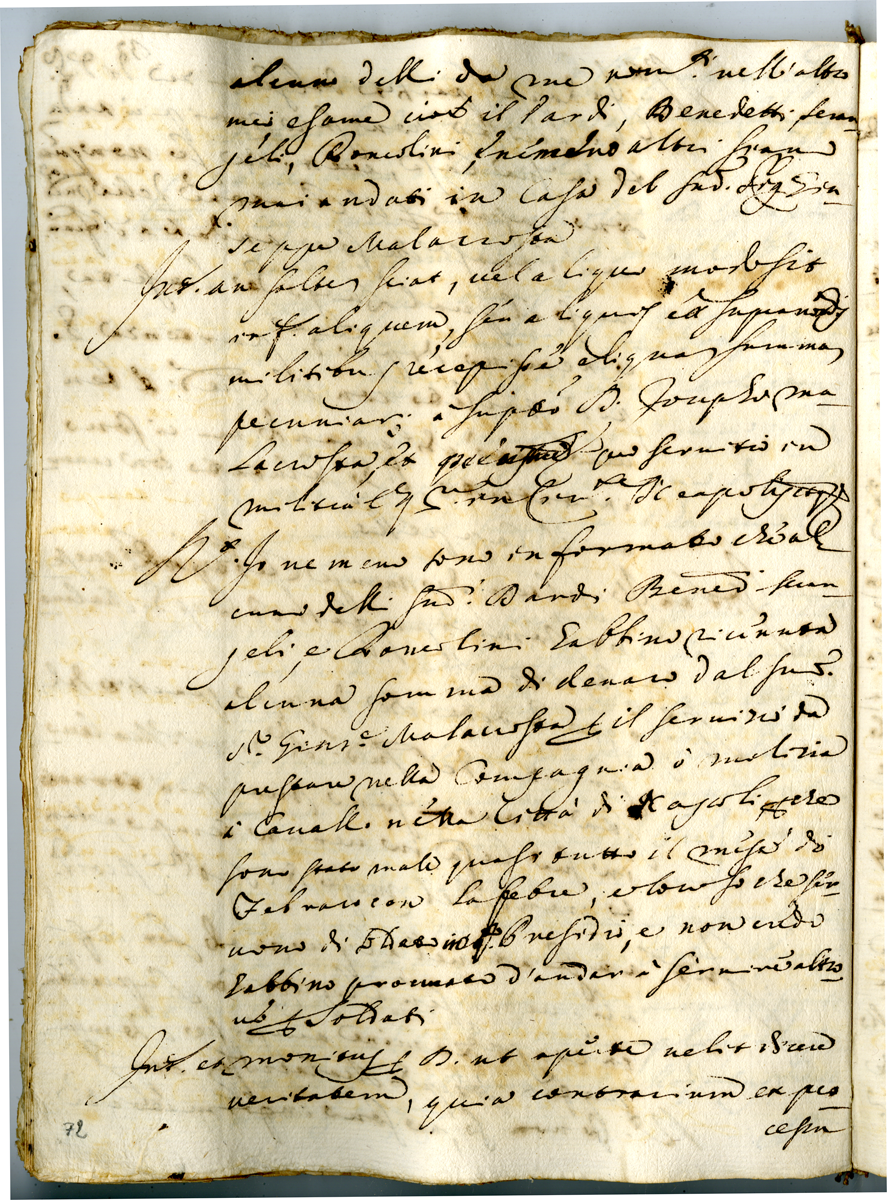 alcuno delli da me nom.ti nell'altro
mio esame cioè il Bardi, Benedetti, scan-
geli, Roncolini, ne meno altri siano
mai andati in Casa del sud.o Sig.r Giu-
seppe Malacrosta
Int. an saltem sciat, vel aliquo modo sit
inf. aliquem, seu aliquos ex supran.dis
militibus recepisse aliquas summas
pecuniar: a supto D. Josepho Ma-
lacrosta, et pro servitio in
militia in Neapolis
R. Io ne meno sono informato che al-
cuno delli sud.i Bardi Bened.i scan-
geli, e Roncolini habbino ricevuta
alcuna somma di denaro dal sud.o
S.r Gius.e Malacrosta p il servizio da
prestare nella Compagnia ò milizia
à Cavallo nella Città di Napoli, che
sono stato male quasi tutto il mese di
Febraro con la febre, e loro so che ser-
vono di Soldato in q.o Presidio, e non credo
habbino procurato d'andar à servire altro-
ve p Soldati
Int. et monitus p D. ut aperte velit dicere
veritatem, quia contrarium ex pro-
cessu
72